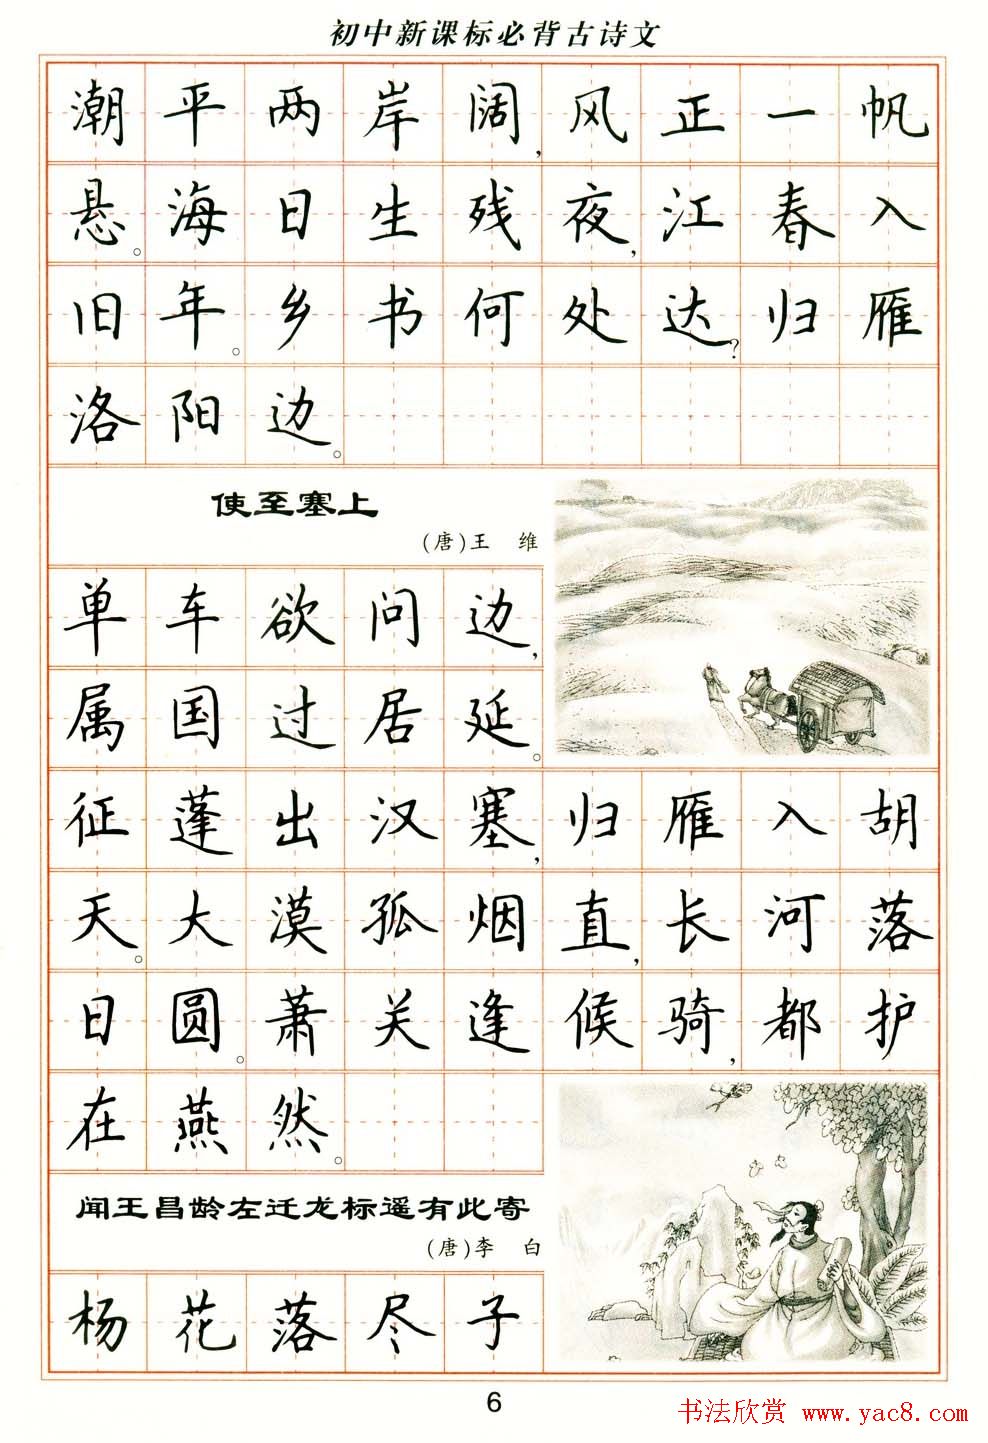 初中新课标必背古诗文
潮平两岸阔,风正一帆
悬。海日生残夜,江春入
旧年。乡书何处达?归雁
洛阳边。
使至塞上
(唐)王 维
单车欲问边,
属国过居延。
征蓬出汉塞,归雁入胡
天。大漠孤烟直,长河落
日圆。萧关逢候骑,都护
在燕然。
闻王昌龄左迁龙标遥有此寄
(唐)李 白
杨花落尽子
6
书法欣赏 www.yac8.com